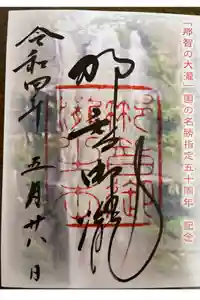 「那智の大瀧」国の名勝指定五十周年 記念
那智御瀧
令和四年 五月廿八日